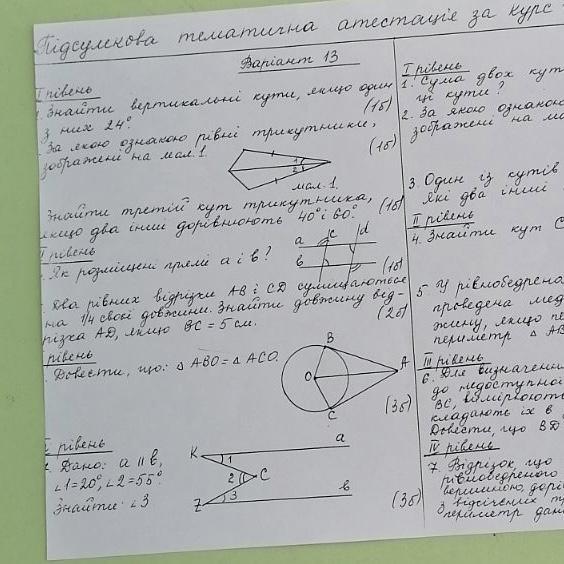 Підсумкова тематична атестація за курс
Варіант 13
І рівень
1. Знайти вертикальні кути, якщо один
з них 24°. (1б)
За якою ознакою рівні трикутники,
зображені на мал. 1. (1б)
1
2
мал. 1.
Знайти третій кут трикутника,
якщо два інші дорівнюють 40° і 60°. (1б)
ІІ рівень
Як розміщені прямі a і b?
a c d
b
(1б)
Два рівних відрізки AB і CD суміщаються
на 1/4 своєї довжини. Знайти довжину від-
різка AD, якщо BC = 5 см. (2б)
рівень
Довести, що: △ ABO = △ ACO.
B
O
A
C
(3б)
рівень
Дано: a || b,
∠1=20°, ∠2=55°.
Знайти: ∠3
K 1 a
2 C
Z 3 b
(3б)
І рівень
1. Сума двох кут
ці кути?
2. За якою ознакою
зображені на ма
3. Один із кутів
які два інші
ІІ рівень
4. Знайти кут C
5. У рівнобедрена
проведена мед
жину, якщо пе
периметр △ AB
ІІІ рівень
6. Для визначенн
до недоступної
BC, вимірюють
кладають їх в
Довести, що BD
IV рівень
7. Відрізок, що
рівнобедреного
вершиною, дорі
з відсічених тр
периметр дан